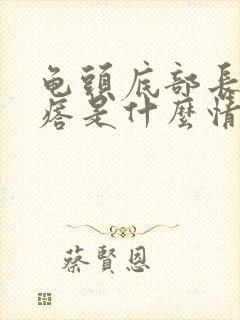 龟頭底部長
痞是什麼情
蔡賢恩